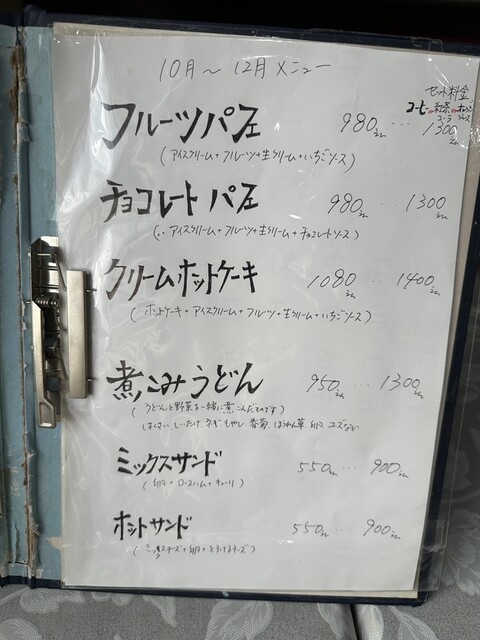 10月～12月メニュー
セット料金
コーヒーor紅茶orオレンジ
コーラ ジュース
フルーツパフェ 980 ... 1300
(アイスクリーム+フルーツ+生クリーム+いちごソース)
チョコレートパフェ 980 ... 1300
(アイスクリーム+フルーツ+生クリーム+チョコレートソース)
クリームホットケーキ 1080 ... 1400
(ホットケーキ+アイスクリーム+フルーツ+生クリーム+いちごソース)
煮こみうどん 950 ... 1300
(うどんと野菜を一緒に煮こんだものです)
はくさい、しいたけ、ネギ、もやし、春菊、ほうれん草、卵、ユズなど
ミックスサンド 550 ... 900
(卵+ロースハム+キューリ)
ホットサンド 550 ... 900